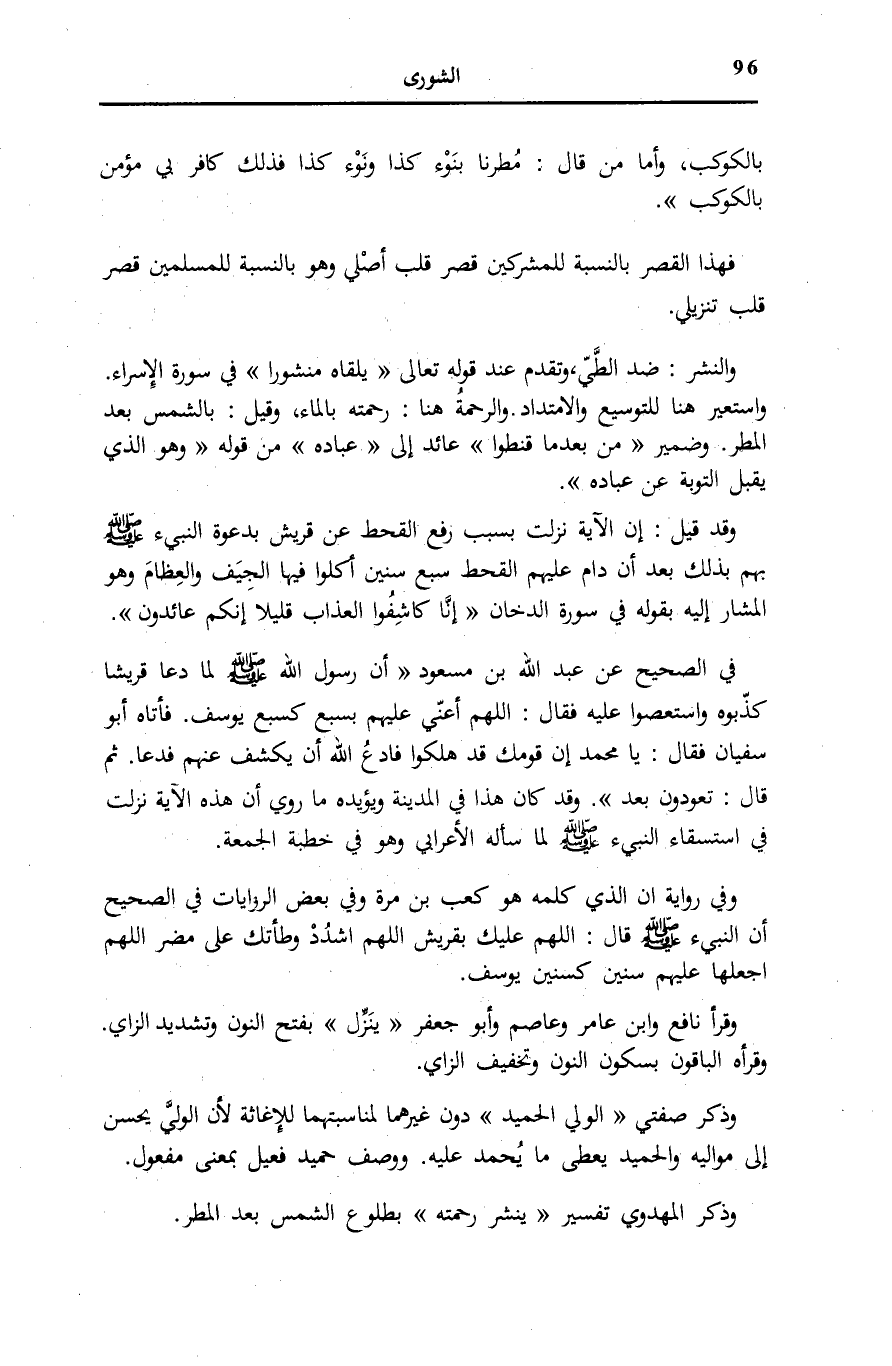 96
الشورى
بالكوكب، وأما من قال : مُطرنا بنَوْء كذا ونَوْء كذا فذلك كافر بي مؤمن
بالكوكب ».
فهذا القصر بالنسبة للمشركين قصر قلب أصْلي وهو بالنسبة للمسلمين قصر
قلب تنزيلي.
والنشر : ضد الطَّيّ،وتقدم عند قوله تعالى « يلقاه منشورا » في سورة الإسراء.
واستعير هنا للتوسيع والامتداد.والرحمةُ هنا : رحمته بالماء، وقيل : بالشمس بعد
المطر. وضمير « من بعدما قنطوا » عائد إلى « عباده » من قوله « وهو الذي
يقبل التوبة عن عباده ».
وقد قيل : إن الآية نزلت بسبب رفع القحط عن قريش بدعوة النبيء ﷺ
بهم بذلك بعد أن دام عليهم القحط سبع سنين أكلوا فيها الجِيَف والعِظامَ وهو
المشار إليه بقوله في سورة الدخان « إنَّا كاشِفُوا العذاب قليلا إنكم عائدون ».
في الصحيح عن عبد الله بن مسعود « أن رسول الله ﷺ لما دعا قريشا
كذّبوه واستعصوا عليه فقال : اللهم أعنّي عليهم بسبع كسبع يوسف. فأتاه أبو
سفيان فقال : يا محمد إن قومك قد هلكوا فادعُ الله أن يكشف عنهم فدعا. ثم
قال : تعودون بعد ». وقد كان هذا في المدينة ويؤيده ما روي أن هذه الآية نزلت
في استسقاء النبيء ﷺ لما سأله الأعرابي وهو في خطبة الجمعة.
وفي رواية ان الذي كلمه هو كعب بن مرة وفي بعض الروايات في الصحيح
أن النبيء ﷺ قال : اللهم عليك بقريش اللهم اشدُدْ وطأتك على مضر اللهم
اجعلها عليهم سنين كسنين يوسف.
وقرأ نافع وابن عامر وعاصم وأبو جعفر « ينَزِّل » بفتح النون وتشديد الزاي.
وقرأه الباقون بسكون النون وتخفيف الزاي.
وذكر صفتي « الولي الحميد » دون غيرهما لمناسبتهما للإغاثة لأن الوليَّ يحسن
إلى مواليه والحميد يعطى ما يُحمد عليه. ووصف حميد فعيل بمعنى مفعول.
وذكر المهدوي تفسير « ينشر رحمته » بطلوع الشمس بعد المطر.